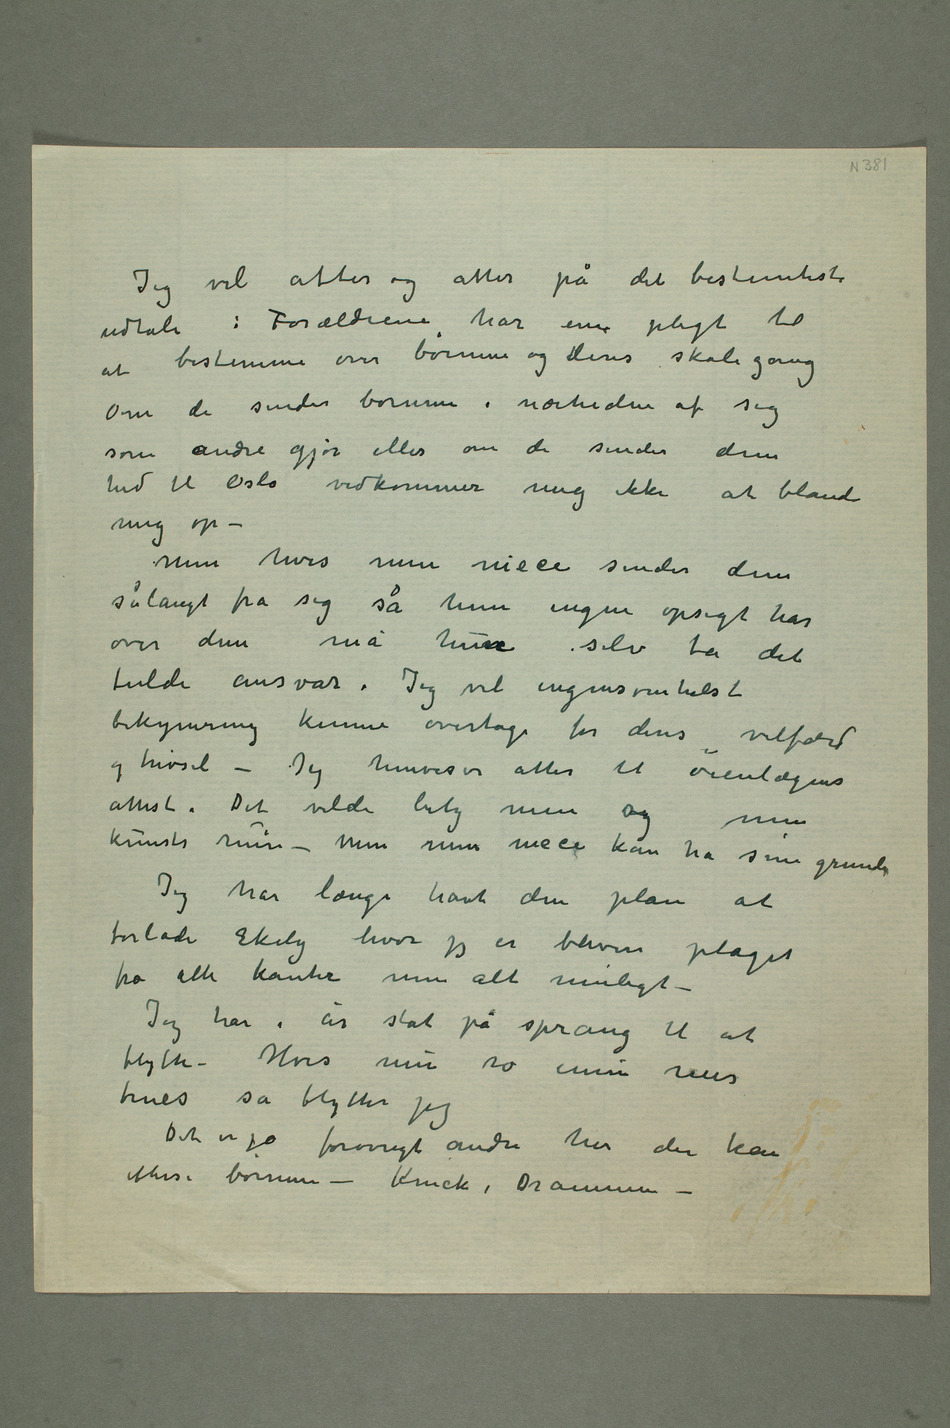 N 381
Jeg vil atter og atter på det bestemteste
udtale : Forældrene har en pligt til
at bestemme over børnene og deres skolegang
Om de sender børnene i nærheden af sig
som andre gjør eller om de sender dem
hid til Oslo vedkommer mig ikke at blande
mig op –
Men hvis min niece sender dem
sålangt fra sig så hun ingen opsigt har
over dem må hun selv ta det
fulde ansvar. Jeg vil ingensomhelst
bekymring kunne overtage for deres velfærd
og trivsel – Jeg henviser atter til øienlægens
attest. Det vilde bety min og min
kunsts ruin – Men min niece kan ha sine grunde
Jeg har længe havt den plan at
forlade Ekely hvor jeg er bleven plaget
fra alle kanter men alt muligt –
Jeg har i år stat på sprang til at
flytte – Hvis min ro ennu mer
trues så flytter jeg
Det er jo forøvrigt andre her der kan
efterse børnene – Kruck, Drammen –